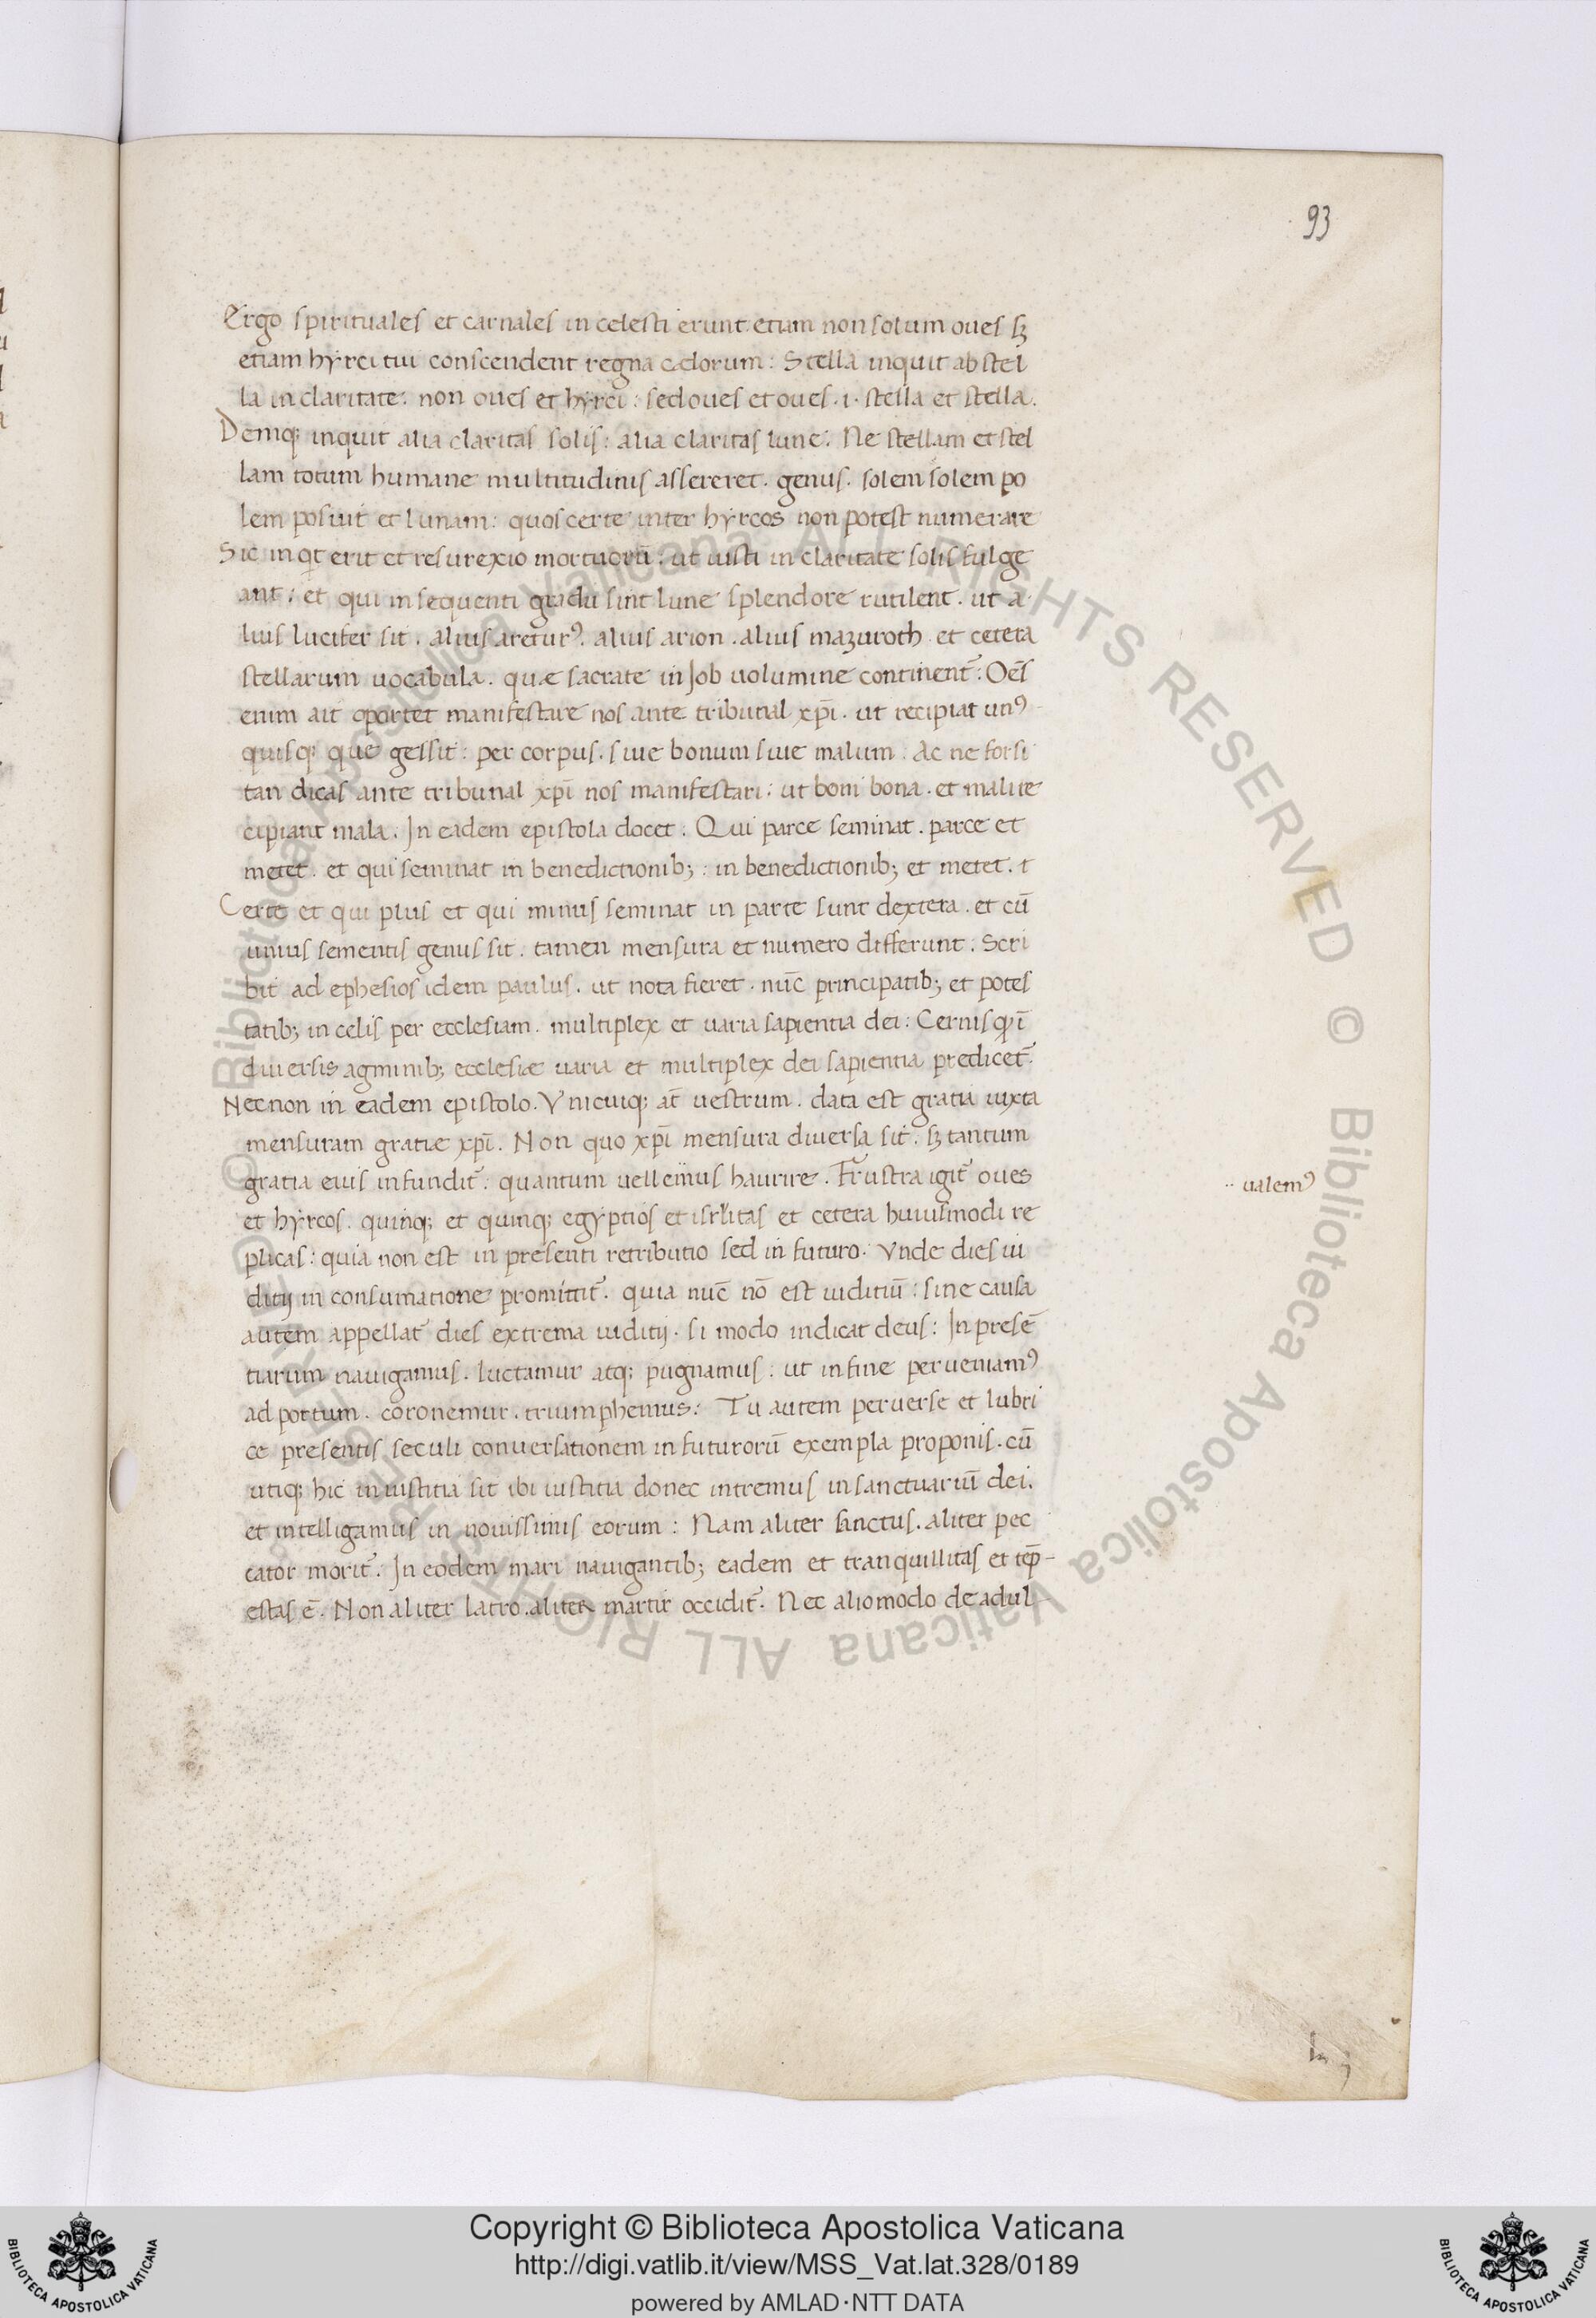 93
Ergo spirituales et carnales in celesti erunt. etiam non solum oues sȝ
etiam hyrci tui conscendent regna cęlorum: Stella inquit ab stel
la in claritate: non oues et hyrci: sed oues et oues .i. stella et stella.
Demq; inquit alia claritas solis: alia claritas lune. Ne stellam et stel
lam totum humane multitudinis assereret. genus. solem solem po
lem posuit et lunam: quos certe inter hyrcos non potest numerare
Sic inqt erit et resurexio mortuorū. ut iusti in claritate solis fulge
ant: et qui in sequenti gradu sint lune splendore rutilent. ut a
lius lucifer sit. alius areturꝰ. alius arion. alius mazuroth. et cetera
stellarum uocabula. quæ sacrate in Job uolumine continent̃: Oēs
enim ait oportet manifestare nos ante tribunal xp̄i. ut recipiat unꝰ
quisq; que gessit: per corpus. siue bonum siue malum. Ac ne forsi
tan dicas ante tribunal xp̄i nos manifestari: ut boni bona. et mali re
cipiant mala. In eadem epistola docet. Qui parce seminat. parce et
metet. et qui seminat in benedictionib;: in benedictionib; et metet.
Certe et qui plus et qui minus seminat in parte sunt dextera. et cū
unius sementis genus sit. tamen mensura et numero differunt. Scri
bit ad ephesios idem paulus. ut nota fieret. nūc principatib; et potes
tatib; in celis per ecclesiam. multiplex et uaria sapientia dei: Cernis
diuersis agminib; ecclesiæ uaria et multiplex dei sapientia predicet̃.
Nec non in eadem epistolo. Vnicuiq; at̃ uestrum. data est gratia iuxta
mensuram gratiæ xp̄i. Non quo xp̄i mensura diuersa sit. sȝ tantum
gratia eius infundit̃: quantum uellemus haurire. Frustra igit̃ oues
·· ualemꝰ
et hyrcos. quinq; et quinq; egyptios et isrlitas et cetera huiusmodi re
plicas: quia non est in presenti retributio sed in futuro. Vnde dies iu
ditij in consumatione promittit̃. quia nūc nō est iuditiū: sine causa
autem appellat̃ dies extrema iuditij. si modo indicat deus: In presē
tiarum nauigamus. luctamur atq; pugnamus: ut in fine perueniamꝰ
ad portum. coronemur. triumphemus: Tu autem peruerse et lubri
ce presentis seculi conuersationem in futurorū exempla proponis. cū
utiq; hic iniustitia sit ibi iustitia donec intremus in sanctuariū dei.
et intelligamus in nouissimis eorum: Nam aliter sanctus. aliter pec
cator morit̃. In eodem mari nauigantib; eadem et tranquillitas et tēp-
estas ē. Non aliter latro. aliter martir occidit̃. Nec alio modo de adul-
Copyright © Biblioteca Apostolica Vaticana
http://digi.vatlib.it/view/MSS_Vat.lat.328/0189
powered by AMLAD·NTT DATA